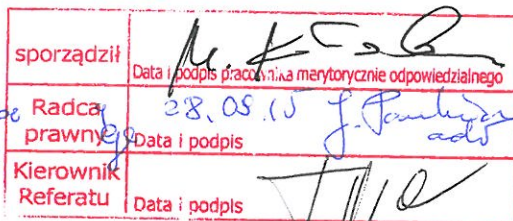 sporządził
Data i podpis pracownika merytorycznie odpowiedzialnego
Radca
prawny
28.05.15
Data i podpis
Kierownik
Referatu
Data i podpis